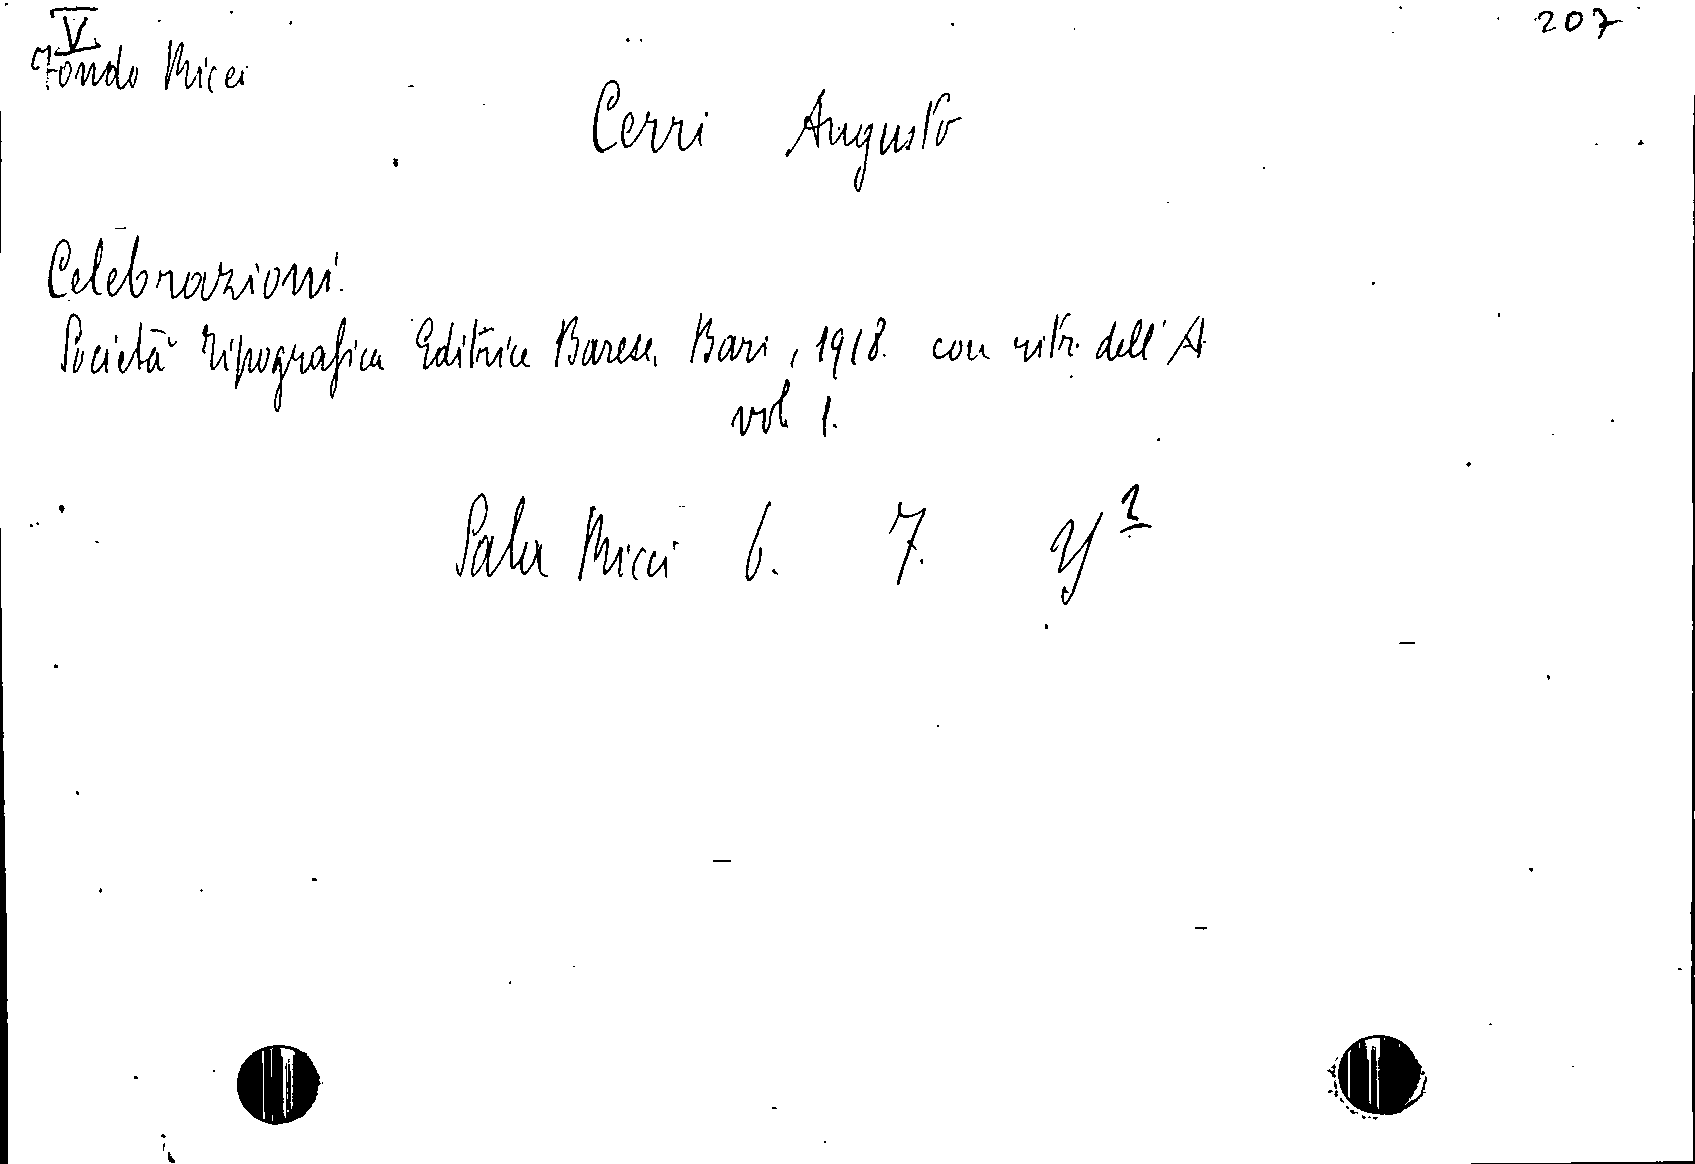 V 207
Fondo Ricci
Cerri Augusto
Celebrazioni.
Società Tipografica Editrice Barese, Bari, 1918. con ritr. dell'A
vol 1.
Sala Ricci 6. 7. y 2